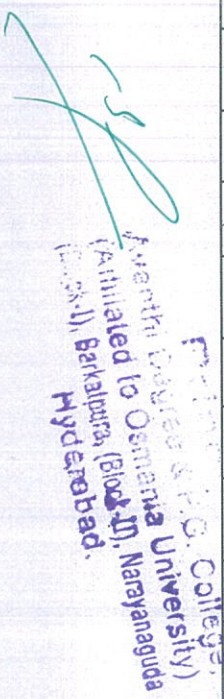 Avanthi Degree & P.G. College
(Affiliated to Osmania University)
(Block-I), Barkatpura, (Block-II), Narayanaguda
Hyderabad.